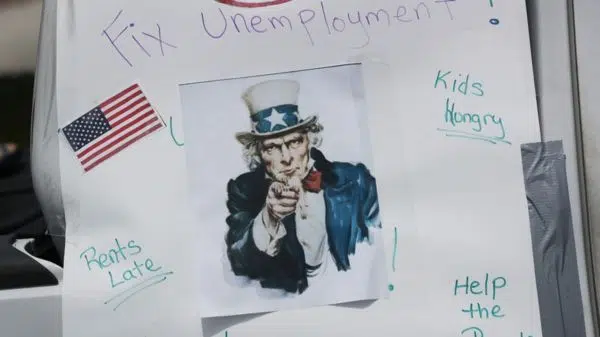 Fix Unemployment!
Kids
Hungry
Rents
Late
!
Help
the